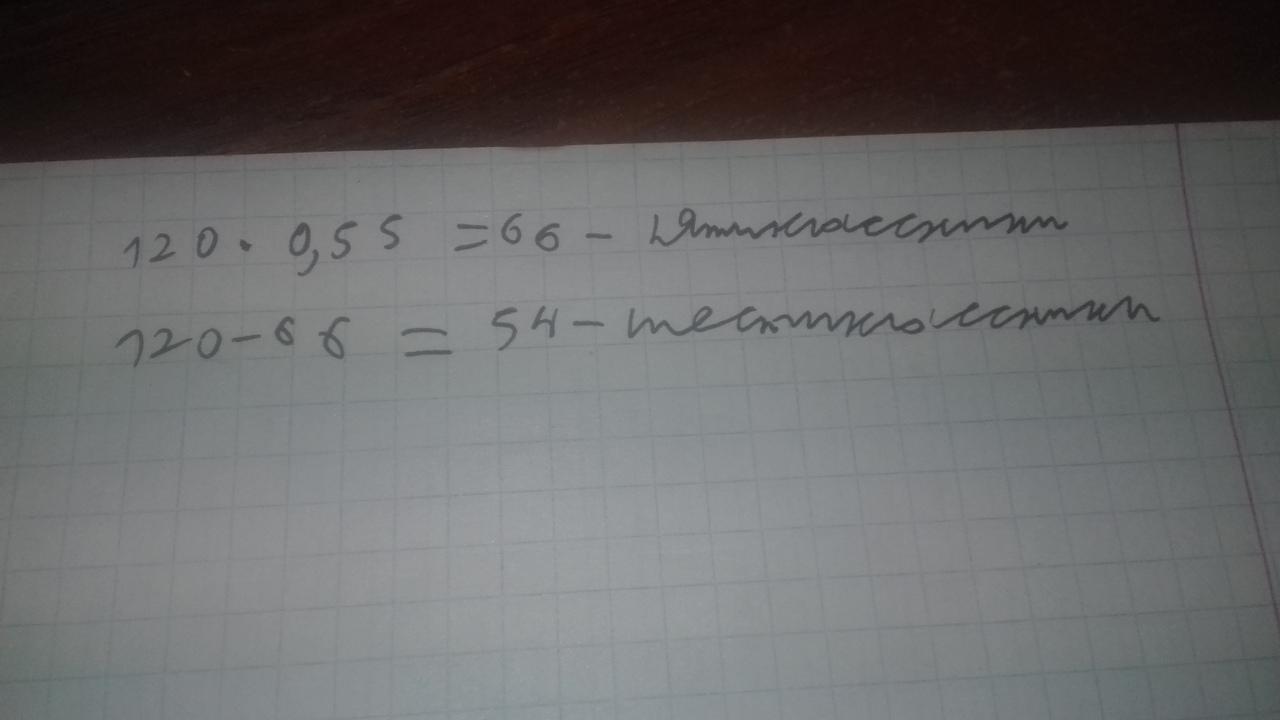 120 . 0,55 = 66 - пятиклассники
120 - 66 = 54 - шестиклассники